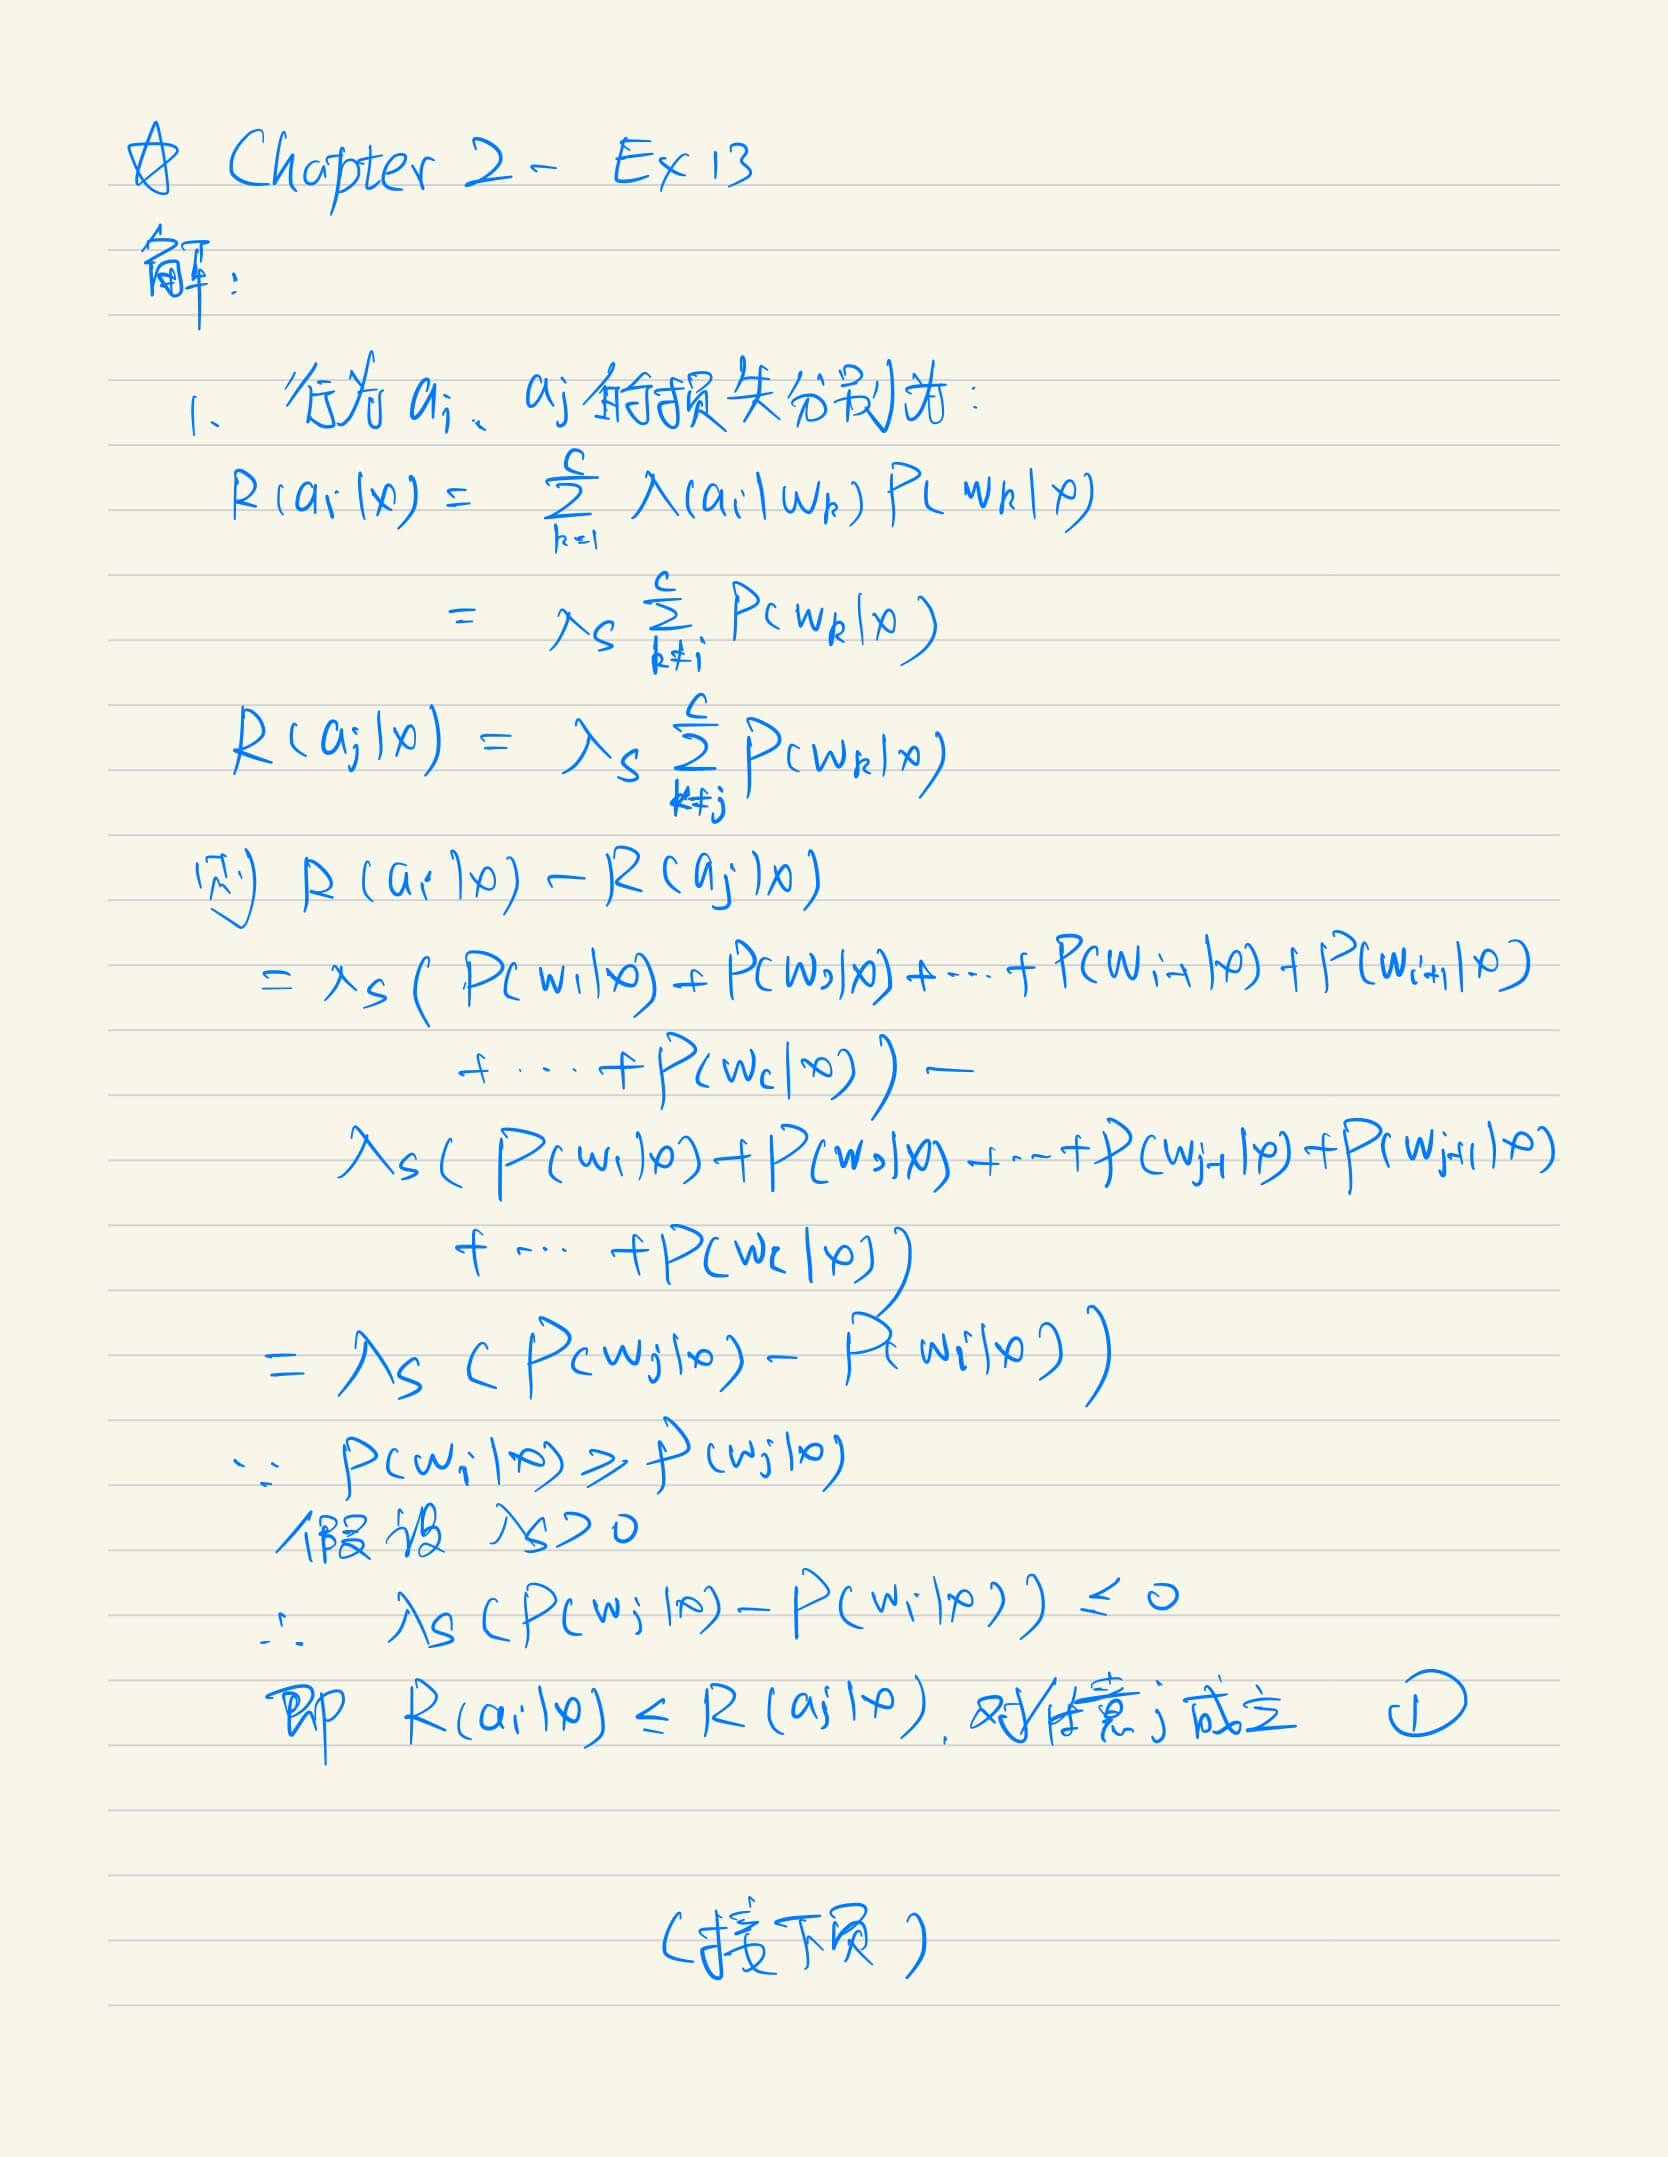 ☆ Chapter 2 - Ex 13
解:
1、 行为 ai、aj 的损失分别为:
R(ai|x) = ∑_{k=1}^{c} λ(ai|wk) P(wk|x)
= λs ∑_{k≠i}^{c} P(wk|x)
R(aj|x) = λs ∑_{k≠j}^{c} P(wk|x)
则 R(ai|x) - R(aj|x)
= λs ( P(w1|x) + P(w2|x) + ··· + P(wi-1|x) + P(wi+1|x)
+ ··· + P(wc|x)) -
λs ( P(w1|x) + P(w2|x) + ··· + P(wj-1|x) + P(wj+1|x)
+ ··· + P(wc|x))
= λs (P(wj|x) - P(wi|x))
∵ P(wi|x) ≥ P(wj|x)
假设 λs > 0
∴ λs (P(wj|x) - P(wi|x)) ≤ 0
即 R(ai|x) ≤ R(aj|x), 对任意 j 成立 ①
(接下页)